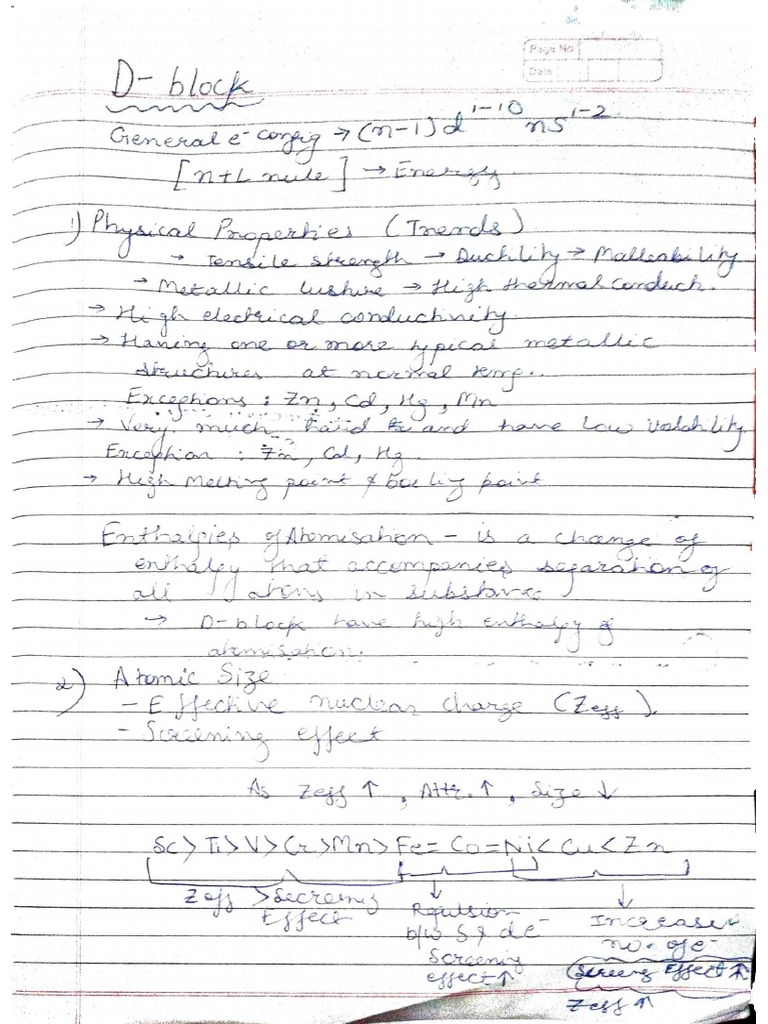 Page No.
Date
D- block
General e⁻ config → (n-1)d¹⁻¹⁰ ns¹⁻²
[n+L rule] → Energy.
1) Physical Properties (Trends)
→ Tensile strength → Ductility → Malleability
→ Metallic lushire → High thermal conduch.
→ High electrical conductivity
→ Having one or more typical metallic
structures at normal temp..
Exceptions : Zn, Cd, Hg, Mn
→ Very much hard and have low volatility.
Exception : Zn, Cd, Hg.
→ High Melting point & boiling point
Enthalpies of Atomisation - is a change of
enthalpy that accompanies separation of
all atoms in substance
→ D-block have high enthalpy of
atomisation.
2) Atomic Size
- Effective nuclear charge (Zeff).
- Screening effect
As Zeff ↑, Attr. ↑, Size ↓
Sc > Ti > V > Cr > Mn > Fe = Co = Ni < Cu < Zn
Zeff > Secreening
Effect
Repulsion
b/w S & d e⁻
Screening
effect ↑
Increase
no. of e⁻
Screeng Effect ↑
Zeff ↑